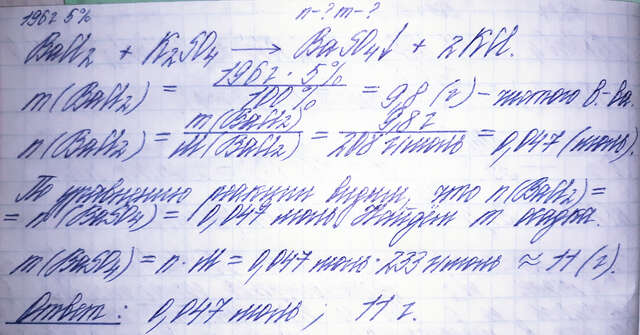 196г 5% n-? m-?
BaCl2 + K2SO4 → BaSO4↓ + 2KCl.
m(BaCl2) = 196г · 5% / 100% = 9,8 (г) - чистого в-ва.
n(BaCl2) = m(BaCl2) / M(BaCl2) = 9,8г / 208 г/моль = 0,047 (моль).
По уравнению реакции видим, что n(BaCl2) =
= n(BaSO4) = 0,047 моль. Найдем m осадка.
m(BaSO4) = n · M = 0,047 моль · 233 г/моль ≈ 11 (г).
Ответ: 0,047 моль; 11 г.